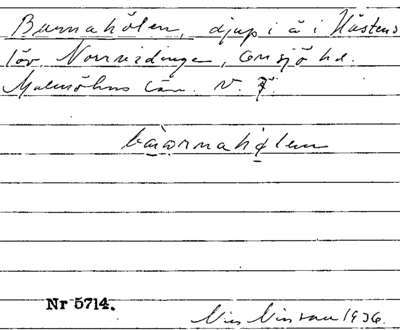 Barnahölen, djup i å i Hästens
löv. Norrvidinge, Onsjö hd.
Malmöhus län. V.
bàrnahǫlen
Nr 5714.
Nils Nilsson 1936.